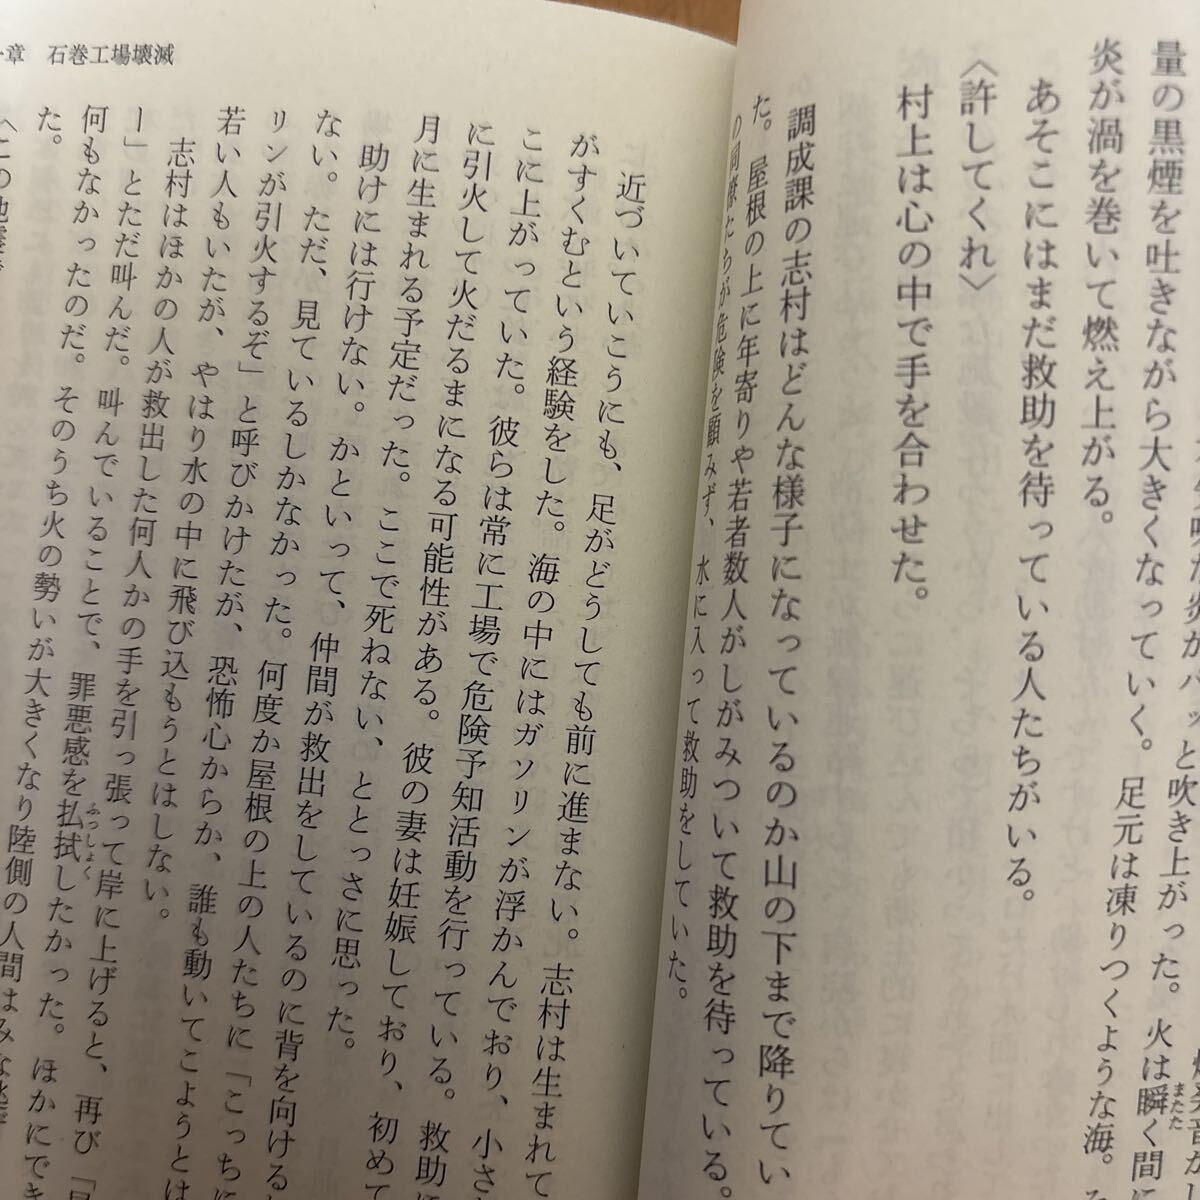 量の黒煙を吐きながら大きくなっていく。足元は凍りつくような海。
炎が渦を巻いて燃え上がる。
あそこにはまだ救助を待っている人たちがいる。
〈許してくれ〉
村上は心の中で手を合わせた。
調成課の志村はどんな様子になっているのか山の下まで降りてい
た。屋根の上に年寄りや若者数人がしがみついて救助を待っている。
の同僚たちが危険を顧みず、水に入って救助をしていた。
第一章 石巻工場壊滅
近づいていこうにも、足がどうしても前に進まない。志村は生まれて
がすくむという経験をした。海の中にはガソリンが浮かんでおり、小さ
こに上がっていた。彼らは常に工場で危険予知活動を行っている。救助に
に引火して火だるまになる可能性がある。彼の妻は妊娠しており、初めて
月に生まれる予定だった。ここで死ねない、ととっさに思った。
助けには行けない。かといって、仲間が救出をしているのに背を向ける
ない。ただ、見ているしかなかった。何度か屋根の上の人たちに「こっちに
リンが引火するぞ」と呼びかけたが、恐怖心からか、誰も動いてこようとは
若い人もいたが、やはり水の中に飛び込もうとはしない。
志村はほかの人が救出した何人かの手を引っ張って岸に上げると、再び「
ー」とただ叫んだ。叫んでいることで、罪悪感を払拭したかった。ほかにでき
何もなかったのだ。そのうち火の勢いが大きくなり陸側の人間はみな
た。